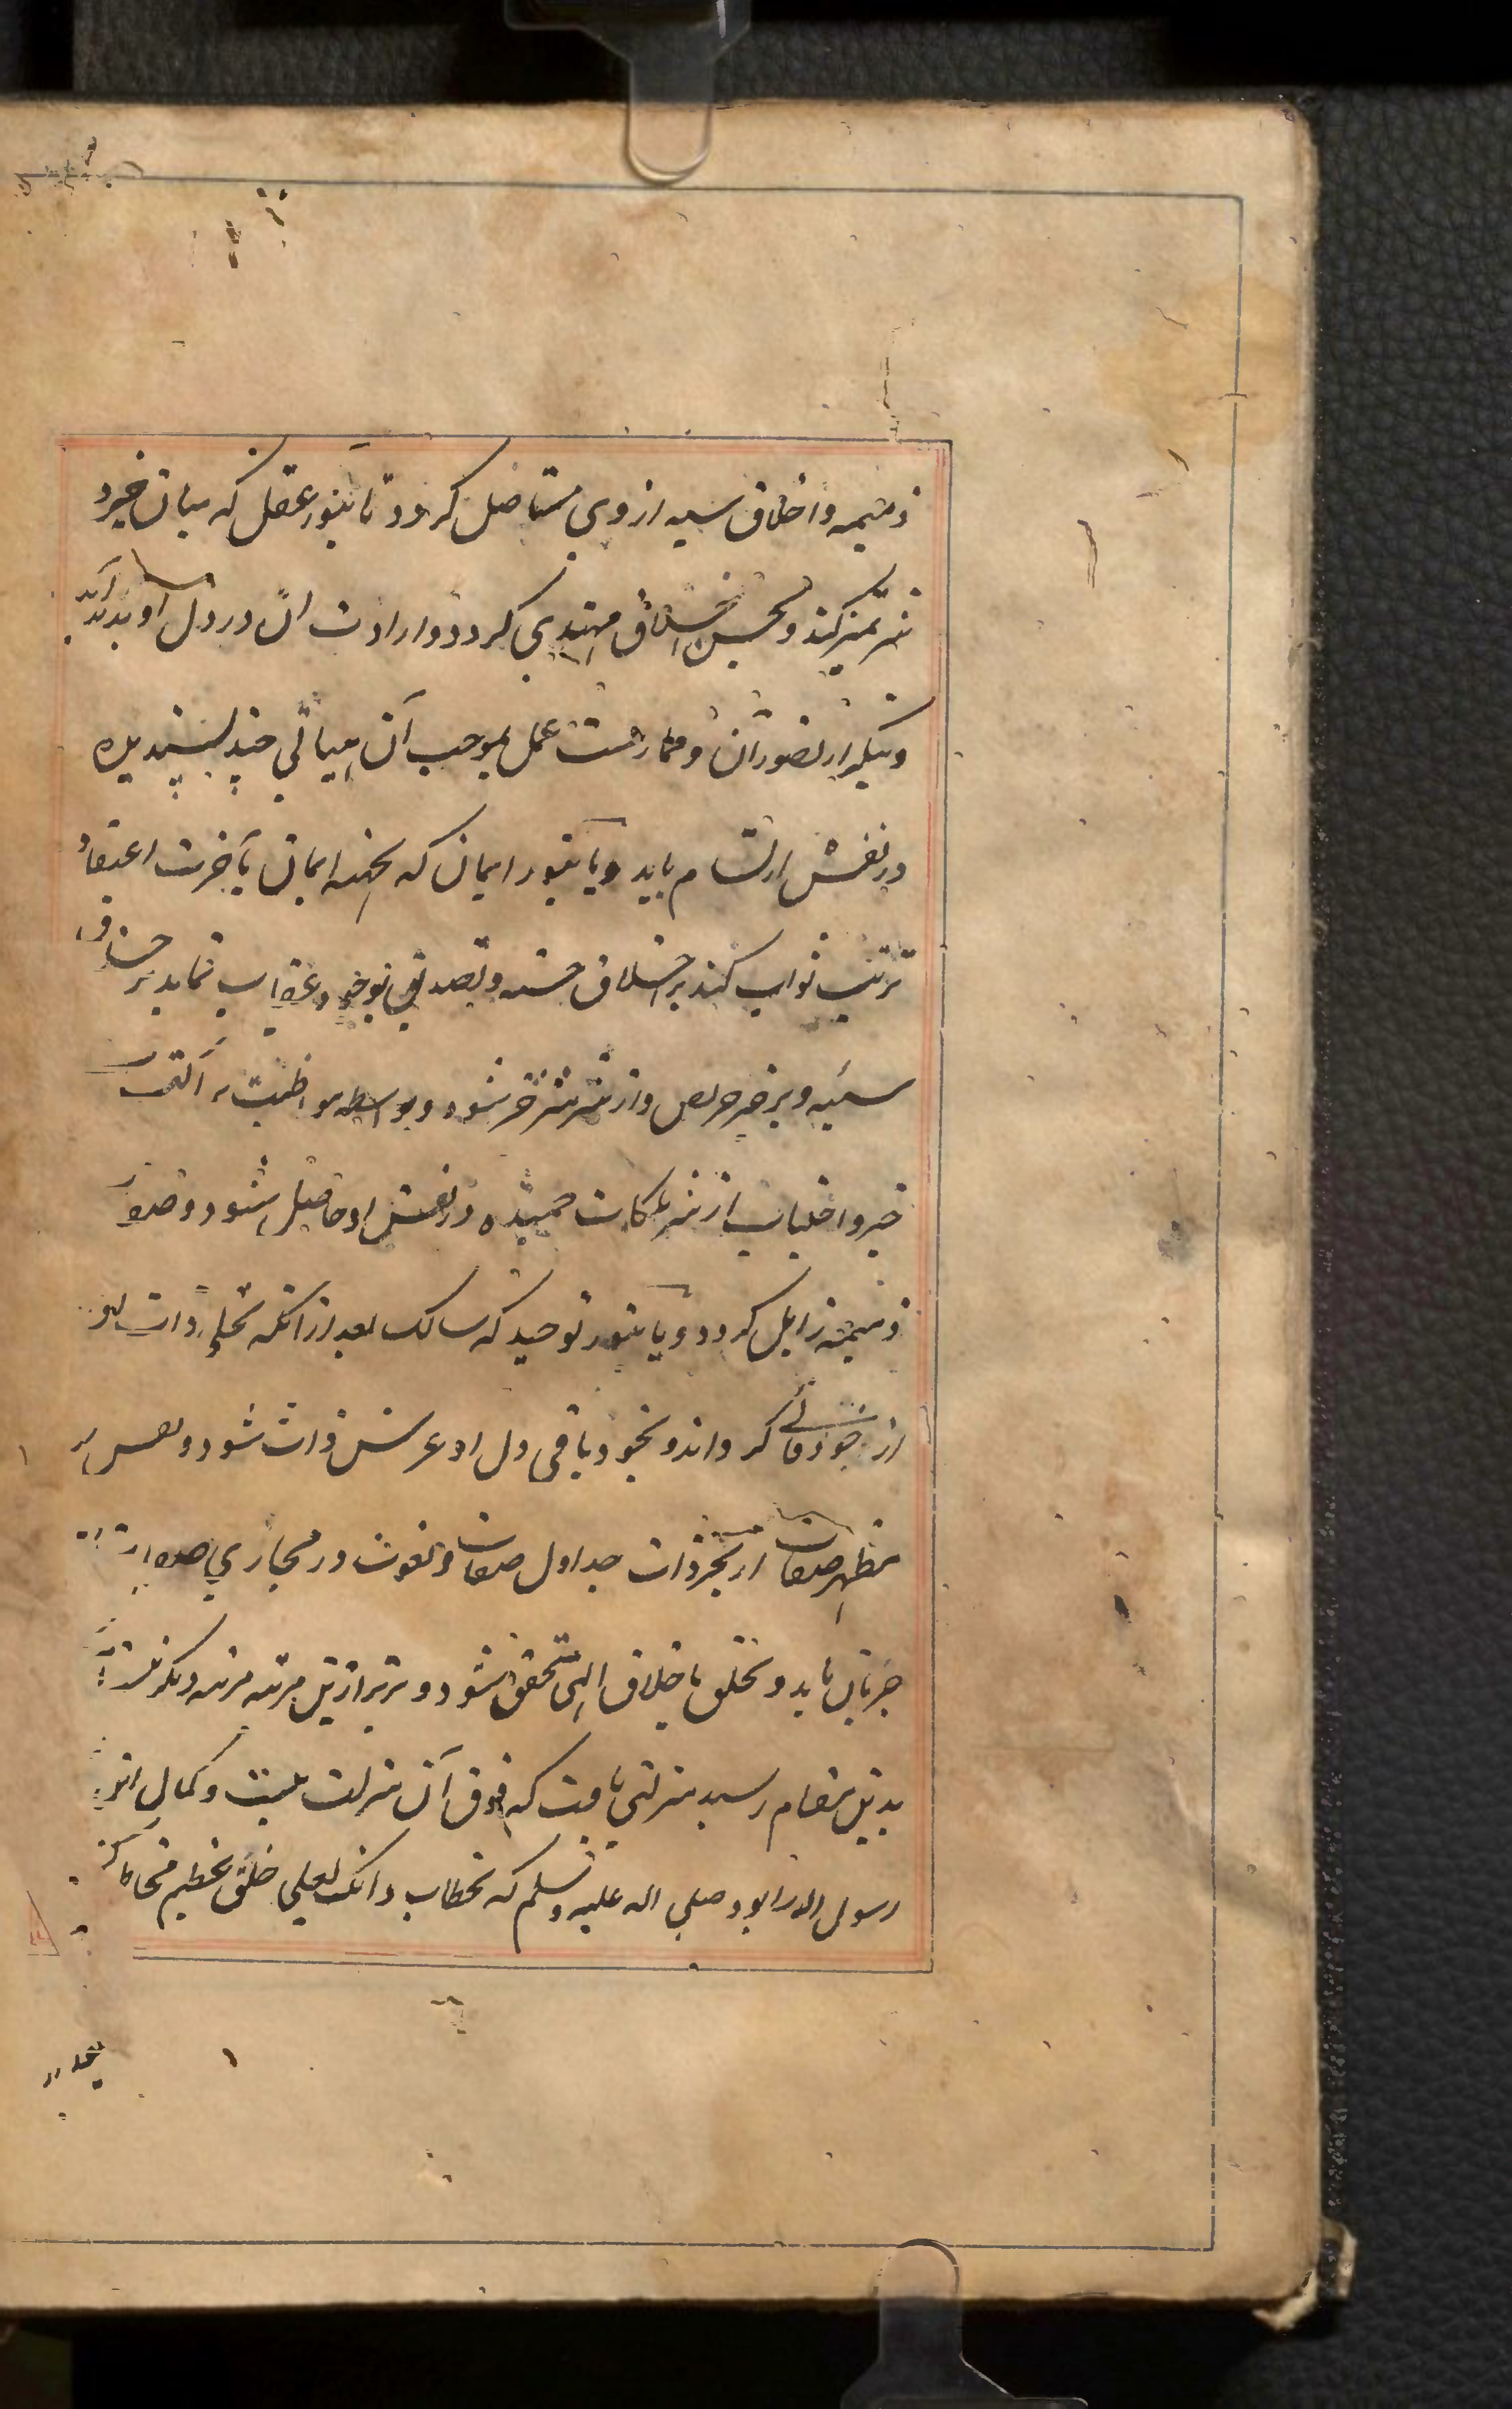 ذمیمه و اخلاق سیه از وی مستاصل کردد تا بنور عقل که میان خیر و
شر تمیز کند و بحسن اخلاق مهتدی کردد و ارادت آن در دل او پدید آید
و بتکرار تصور آن و ممارست عمل بموجب آن هیاتی چند پسندیده
در نفس ارتسام یابد و یا بنور ایمان که بجهه ایمان بآخرت اعتقاد
ترتیب ثواب کند بر اخلاق حسنه و تصدیق بوجود عقاب نماید بر اخلاق
سئیه و بر خیر حریص و از شر منزجر شود و بواسطه مواظبت بر
خیر و اجتناب از شر ملکات حمیده در نفس او حاصل شود و صور
ذمیمه زایل کردد و یا بنور توحید که سالک بعد از آنکه تجلی ذات او
از خود فانی کرداند و بخود باقی دل او عرش ذات شود و نفس
مظهر صفات از بحر ذات جداول صفات و نعوت در مجاری
جریان یابد و تخلق باخلاق الهی متحقق شود و برتر ازین مرتبه مرتبه دیکر
بدین مقام رسید منزلتی یافت که فوق آن منزلت نیست و کمال این
رسول الله را بود صلی الله علیه و سلم که بخطاب و انک لعلی خلق عظیم